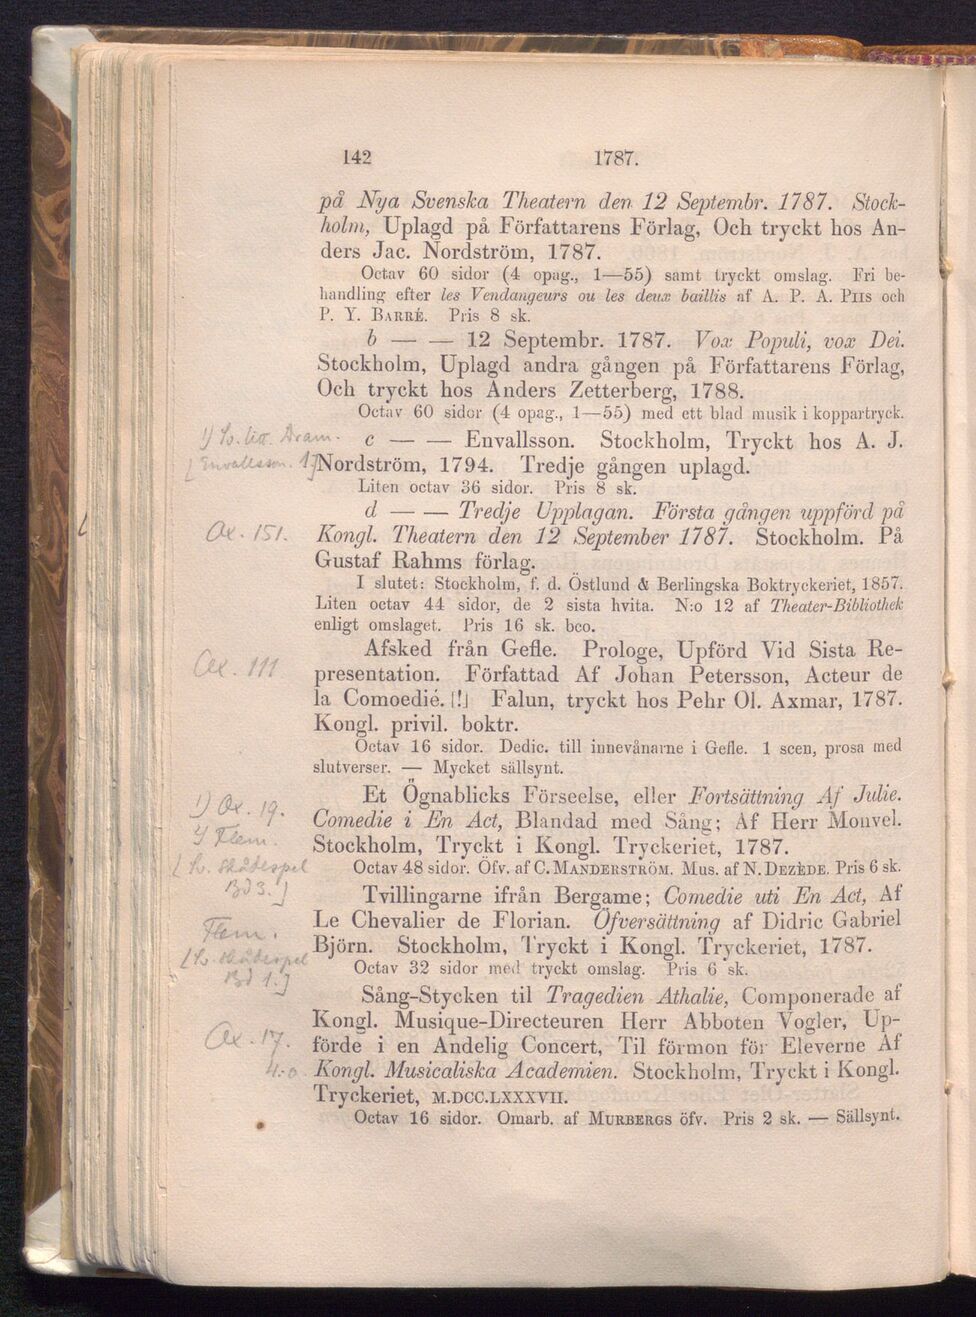 142 1787.
på Nya Svenska Theatern den 12 Septembr. 1787. Stock-
holm, Uplagd på Författarens Förlag, Och tryckt hos An-
ders Jac. Nordström, 1787.
Octav 60 sidor (4 opag., 1—55) samt tryckt omslag. Fri be-
handling efter les Vendangeurs ou les deux baillis af A. P. A. Piis och
P. Y. Barré. Pris 8 sk.
b — — 12 Septembr. 1787. Vox Populi, vox Dei.
Stockholm, Uplagd andra gången på Författarens Förlag,
Och tryckt hos Anders Zetterberg, 1788.
Octav 60 sidor (4 opag., 1—55) med ett blad musik i koppartryck.
c — — Envallsson. Stockholm, Tryckt hos A. J.
Nordström, 1794. Tredje gången uplagd.
Liten octav 36 sidor. Pris 8 sk.
d — — Tredje Upplagan. Första gången uppförd på
Kongl. Theatern den 12 September 1787. Stockholm. På
Gustaf Rahms förlag.
I slutet: Stockholm, f. d. Östlund & Berlingska Boktryckeriet, 1857.
Liten octav 44 sidor, de 2 sista hvita. N:o 12 af Theater-Bibliothek
enligt omslaget. Pris 16 sk. bco.
Afsked från Gefle. Prologe, Upförd Vid Sista Re-
presentation. Författad Af Johan Petersson, Acteur de
la Comoedié. [!] Falun, tryckt hos Pehr Ol. Axmar, 1787.
Kongl. privil. boktr.
Octav 16 sidor. Dedic. till innevånarne i Gefle. 1 scen, prosa med
slutverser. — Mycket sällsynt.
Et Ögnablicks Förseelse, eller Fortsättning Af Julie.
Comedie i En Act, Blandad med Sång; Af Herr Monvel.
Stockholm, Tryckt i Kongl. Tryckeriet, 1787.
Octav 48 sidor. Öfv. af C. Manderström. Mus. af N. Dezède. Pris 6 sk.
Tvillingarne ifrån Bergame; Comedie uti En Act, Af
Le Chevalier de Florian. Öfversättning af Didric Gabriel
Björn. Stockholm, Tryckt i Kongl. Tryckeriet, 1787.
Octav 32 sidor med tryckt omslag. Pris 6 sk.
Sång-Stycken til Tragedien Athalie, Componerade af
Kongl. Musique-Directeuren Herr Abboten Vogler, Up-
förde i en Andelig Concert, Til förmon för Eleverne Af
Kongl. Musicaliska Academien. Stockholm, Tryckt i Kongl.
Tryckeriet, M.DCC.LXXXVII.
Octav 16 sidor. Omarb. af Murbergs öfv. Pris 2 sk. — Sällsynt.
Ox. 151.
Ox. 111.
1) Ox. 19.
Flem.
Bd 3.]
Flem.
Bd 1.]
Ox. 17.
4:o